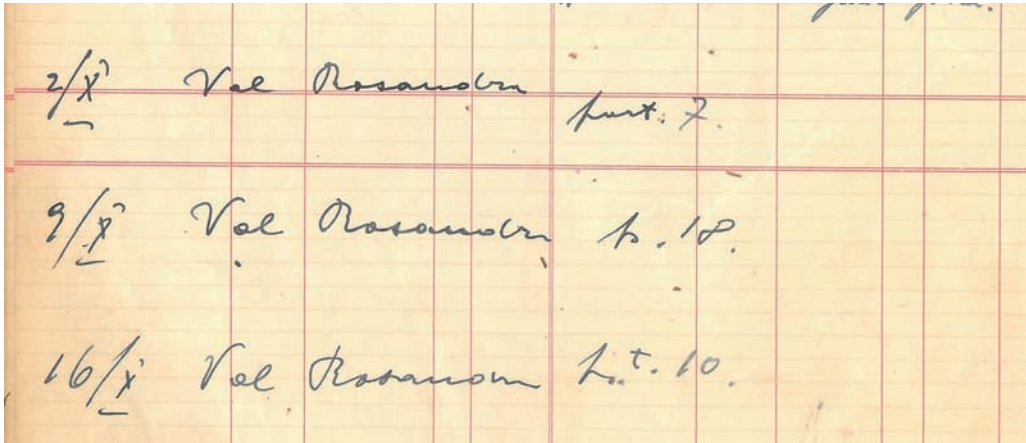 2/X Val Rosandra part. 7.
9/X Val Rosandra p. 18.
16/X Val Rosandra p.t. 10.